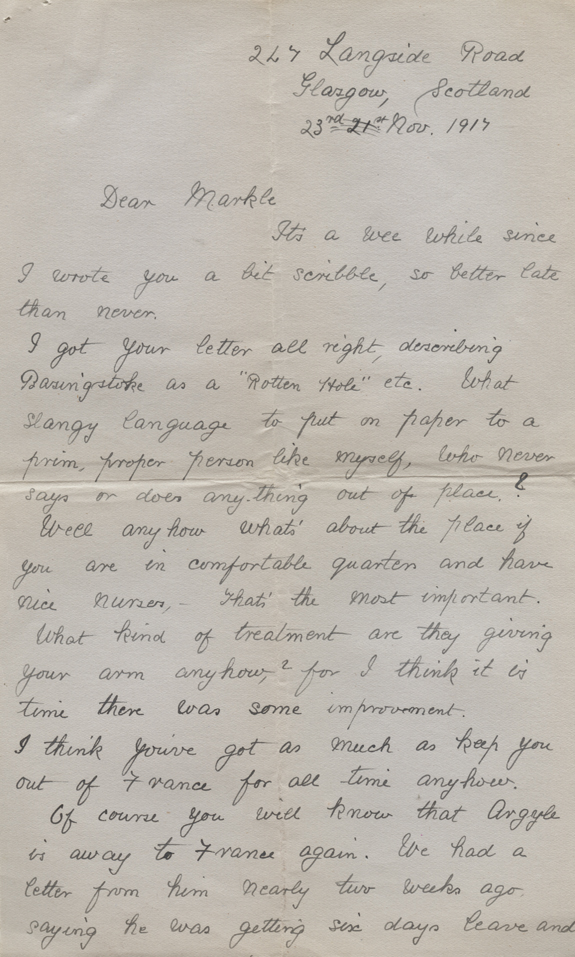 247 Langside Road
Glasgow, Scotland
23rd 21st Nov. 1917
Dear Markle
Its a wee while since
I wrote you a bit scribble, so better late
than never.
I got your letter all right, describing
Basingstoke as a "Rotten Hole" etc. What
slangy language to put on paper to a
prim, proper person like myself, who never
says or does any-thing out of place. ?
Well anyhow whats' about the place if
you are in comfortable quarters and have
nice nurses, - Thats' the most important.
What kind of treatment are they giving
your arm anyhow, ? for I think it is
time there was some improvement.
I think you've got as much as keep you
out of France for all time anyhow.
Of course you will know that Argyle
is away to France again. We had a
letter from him nearly two weeks ago
saying he was getting six days leave and